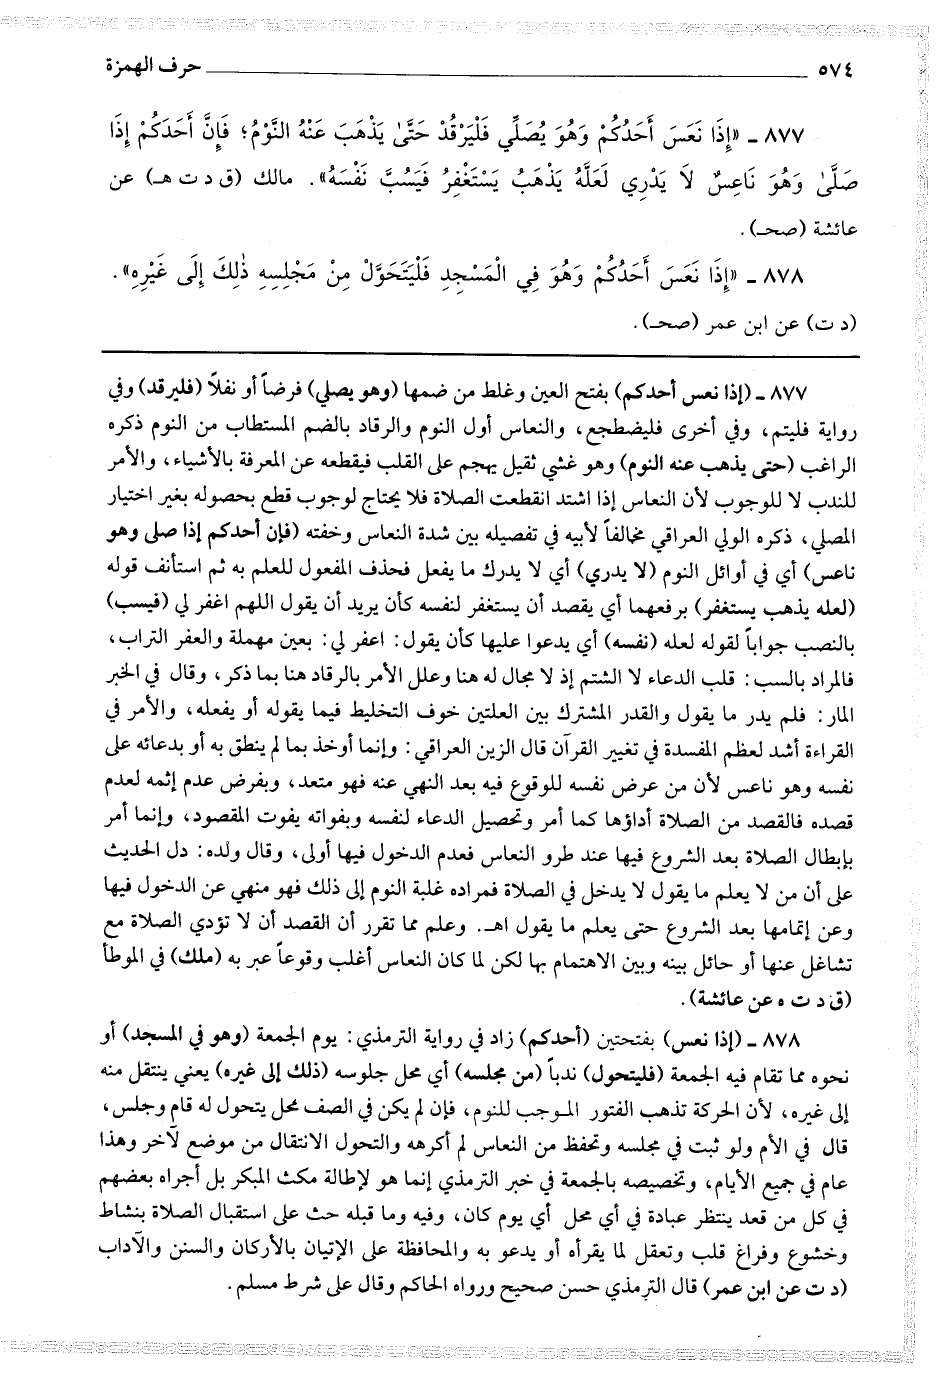 ٥٧٤ حرف الهمزة
٨٧٧ ـ «إِذَا نَعَسَ أَحَدُكُمْ وَهُوَ يُصَلِّي فَلْيَرْقُدْ حَتَّىٰ يَذْهَبَ عَنْهُ النَّوْمُ؛ فَإِنَّ أَحَدَكُمْ إِذَا
صَلَّىٰ وَهُوَ نَاعِسٌ لَا يَدْرِي لَعَلَّهُ يَذْهَبُ يَسْتَغْفِرُ فَيَسُبَّ نَفْسَهُ». مالك (ق د ت هـ) عن
عائشة (صحـ).
٨٧٨ ـ «إِذَا نَعَسَ أَحَدُكُمْ وَهُوَ فِي الْمَسْجِدِ فَلْيَتَحَوَّلْ مِنْ مَجْلِسِهِ ذٰلِكَ إِلَى غَيْرِهِ».
(د ت) عن ابن عمر (صحـ).
٨٧٧ ـ (إذا نعس أحدكم) بفتح العين وغلط من ضمها (وهو يصلي) فرضاً أو نفلاً (فليرقد) وفي
رواية فليتم، وفي أخرى فليضطجع، والنعاس أول النوم والرقاد بالضم المستطاب من النوم ذكره
الراغب (حتى يذهب عنه النوم) وهو غشي ثقيل يهجم على القلب فيقطعه عن المعرفة بالأشياء، والأمر
للندب لا للوجوب لأن النعاس إذا اشتد انقطعت الصلاة فلا يحتاج لوجوب قطع بحصوله بغير اختيار
المصلي، ذكره الولي العراقي مخالفاً لأبيه في تفصيله بين شدة النعاس وخفته (فإن أحدكم إذا صلى وهو
ناعس) أي في أوائل النوم (لا يدري) أي لا يدرك ما يفعل فحذف المفعول للعلم به ثم استأنف قوله
(لعله يذهب يستغفر) برفعهما أي يقصد أن يستغفر لنفسه كأن يريد أن يقول اللهم اغفر لي (فيسب)
بالنصب جواباً لقوله لعله (نفسه) أي يدعوا عليها كأن يقول: اعفر لي: بعين مهملة والعفر التراب،
فالمراد بالسب: قلب الدعاء لا الشتم إذ لا مجال له هنا وعلل الأمر بالرقاد هنا بما ذكر، وقال في الخبر
المار: فلم يدر ما يقول والقدر المشترك بين العلتين خوف التخليط فيما يقوله أو يفعله، والأمر في
القراءة أشد لعظم المفسدة في تغيير القرآن قال الزين العراقي: وإنما أوخذ بما لم ينطق به أو بدعائه على
نفسه وهو ناعس لأن من عرض نفسه للوقوع فيه بعد النهي عنه فهو متعد، وبفرض عدم إثمه لعدم
قصده فالقصد من الصلاة أداؤها كما أمر وتحصيل الدعاء لنفسه وبفواته يفوت المقصود، وإنما أمر
بإبطال الصلاة بعد الشروع فيها عند طرو النعاس فعدم الدخول فيها أولى، وقال ولده: دل الحديث
على أن من لا يعلم ما يقول لا يدخل في الصلاة فمراده غلبة النوم إلى ذلك فهو منهي عن الدخول فيها
وعن إتمامها بعد الشروع حتى يعلم ما يقول اهـ. وعلم مما تقرر أن القصد أن لا تؤدي الصلاة مع
تشاغل عنها أو حائل بينه وبين الاهتمام بها لكن لما كان النعاس أغلب وقوعاً عبر به (ملك) في الموطأ
(ق د ت ه عن عائشة).
٨٧٨ ـ (إذا نعس) بفتحتين (أحدكم) زاد في رواية الترمذي: يوم الجمعة (وهو في المسجد) أو
نحوه مما تقام فيه الجمعة (فليتحول) ندباً (من مجلسه) أي محل جلوسه (ذلك إلى غيره) يعني ينتقل منه
إلى غيره، لأن الحركة تذهب الفتور الموجب للنوم، فإن لم يكن في الصف محل يتحول له قام وجلس،
قال في الأم ولو ثبت في مجلسه وتحفظ من النعاس لم أكرهه والتحول الانتقال من موضع لآخر وهذا
عام في جميع الأيام، وتخصيصه بالجمعة في خبر الترمذي إنما هو لإطالة مكث المبكر بل أجراه بعضهم
في كل من قعد ينتظر عبادة في أي محل أي يوم كان، وفيه وما قبله حث على استقبال الصلاة بنشاط
وخشوع وفراغ قلب وتعقل لما يقرأه أو يدعو به والمحافظة على الإتيان بالأركان والسنن والآداب
(د ت عن ابن عمر) قال الترمذي حسن صحيح ورواه الحاكم وقال على شرط مسلم.